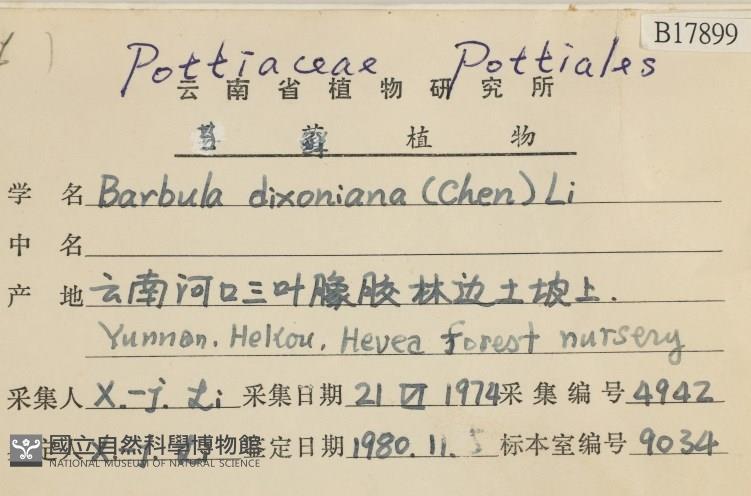 B17899
Pottiaceae Pottiales
云南省植物研究所
苔藓植物
学名 Barbula dixoniana (Chen) Li
中名
产地 云南河口三叶橡胶林边土坡上.
Yunnan. HeKou. Hevea forest nursery
采集人 X.-j. Li 采集日期 21 VI 1974 采集编号 4942
定人 X.-j. Li 鉴定日期 1980.11.5 标本室编号 9034
國立自然科學博物館
NATIONAL MUSEUM OF NATURAL SCIENCE